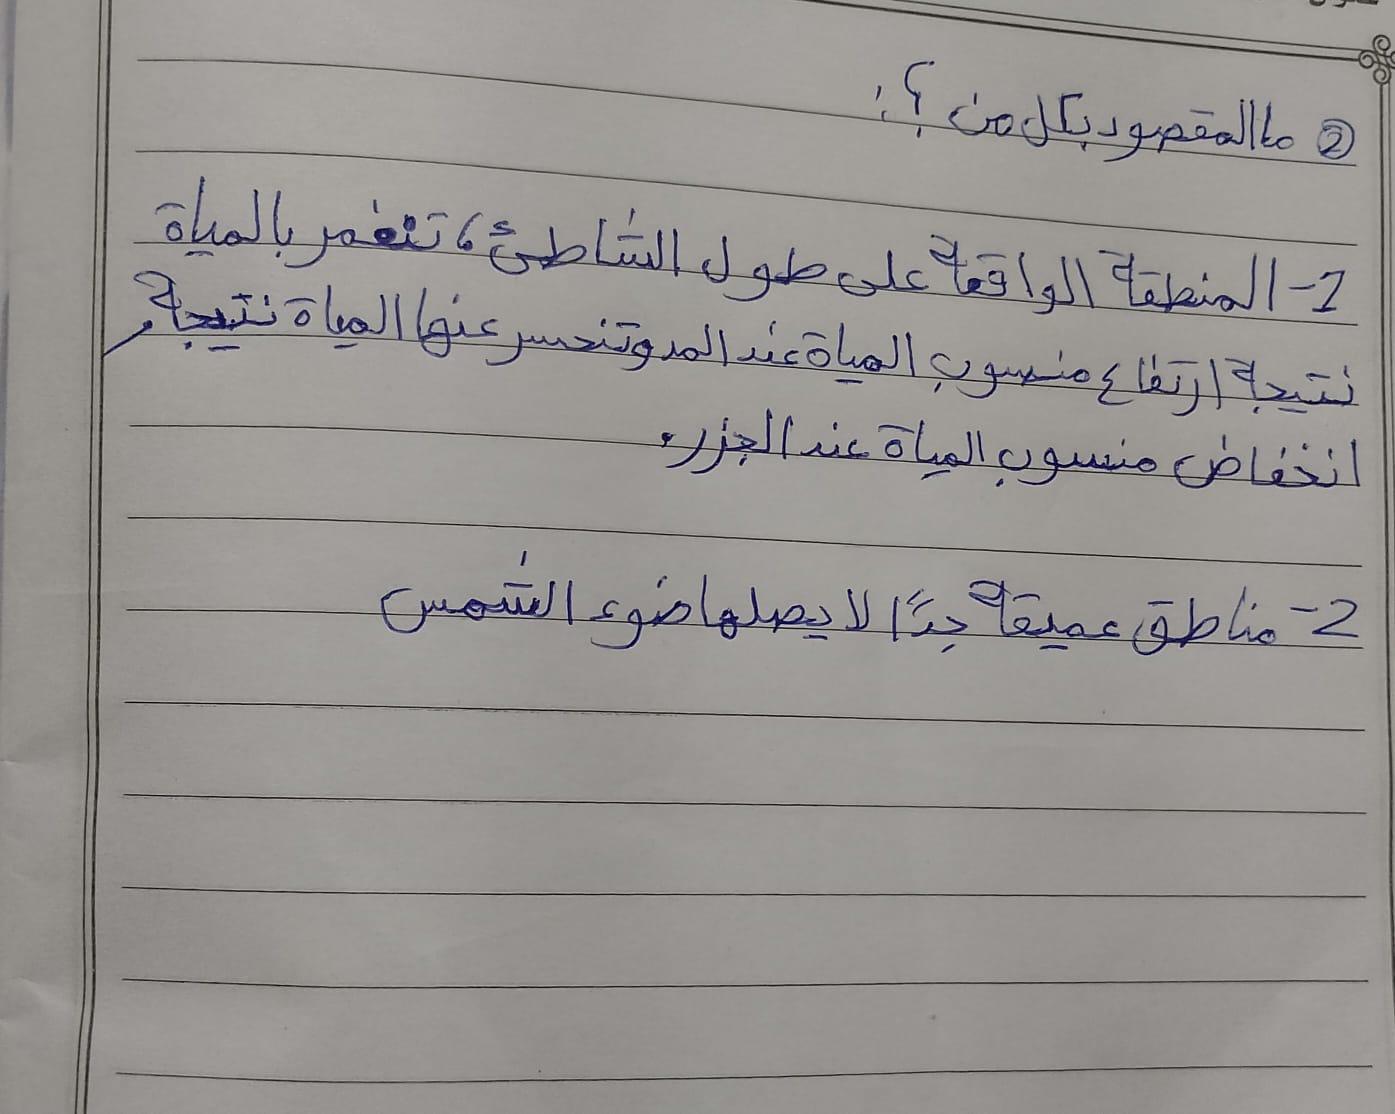 ② ما المقصود بكل من ؟:
1- المنطقة الواقعة على طول الشاطئ، تنغمر بالمياة
نتيجة ارتفاع منسوب المياة عند المد وتنحسر عنها المياة نتيجة
انخفاض منسوب المياة عند الجزر.
2- مناطق عميقة جدًا لا يصلها ضوء الشمس